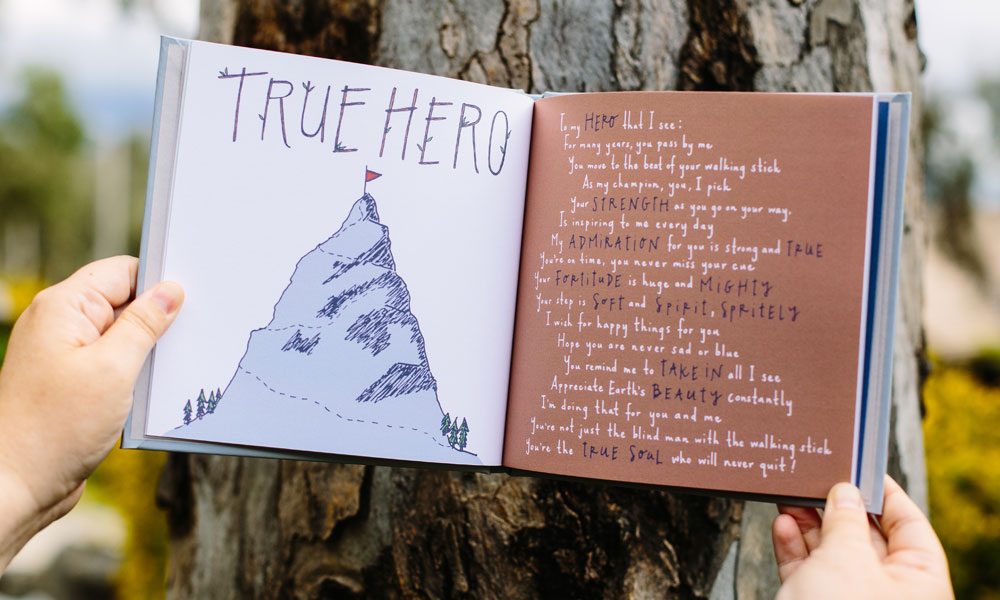 TRUE HERO
To my HERO that I see:
For many years, you pass by me
You move to the beat of your walking stick
As my champion, you, I pick
Your STRENGTH as you go on your way.
Is inspiring to me every day
My ADMIRATION for you is strong and TRUE
You're on time, you never miss your cue
Your FORTITUDE is huge and MIGHTY
Your step is SOFT and SPIRIT, SPRITELY
I wish for happy things for you
Hope you are never sad or blue
You remind me to TAKE IN all I see
Appreciate Earth's BEAUTY constantly
I'm doing that for you and me
You're not just the blind man with the walking stick
You're the TRUE SOUL who will never quit!